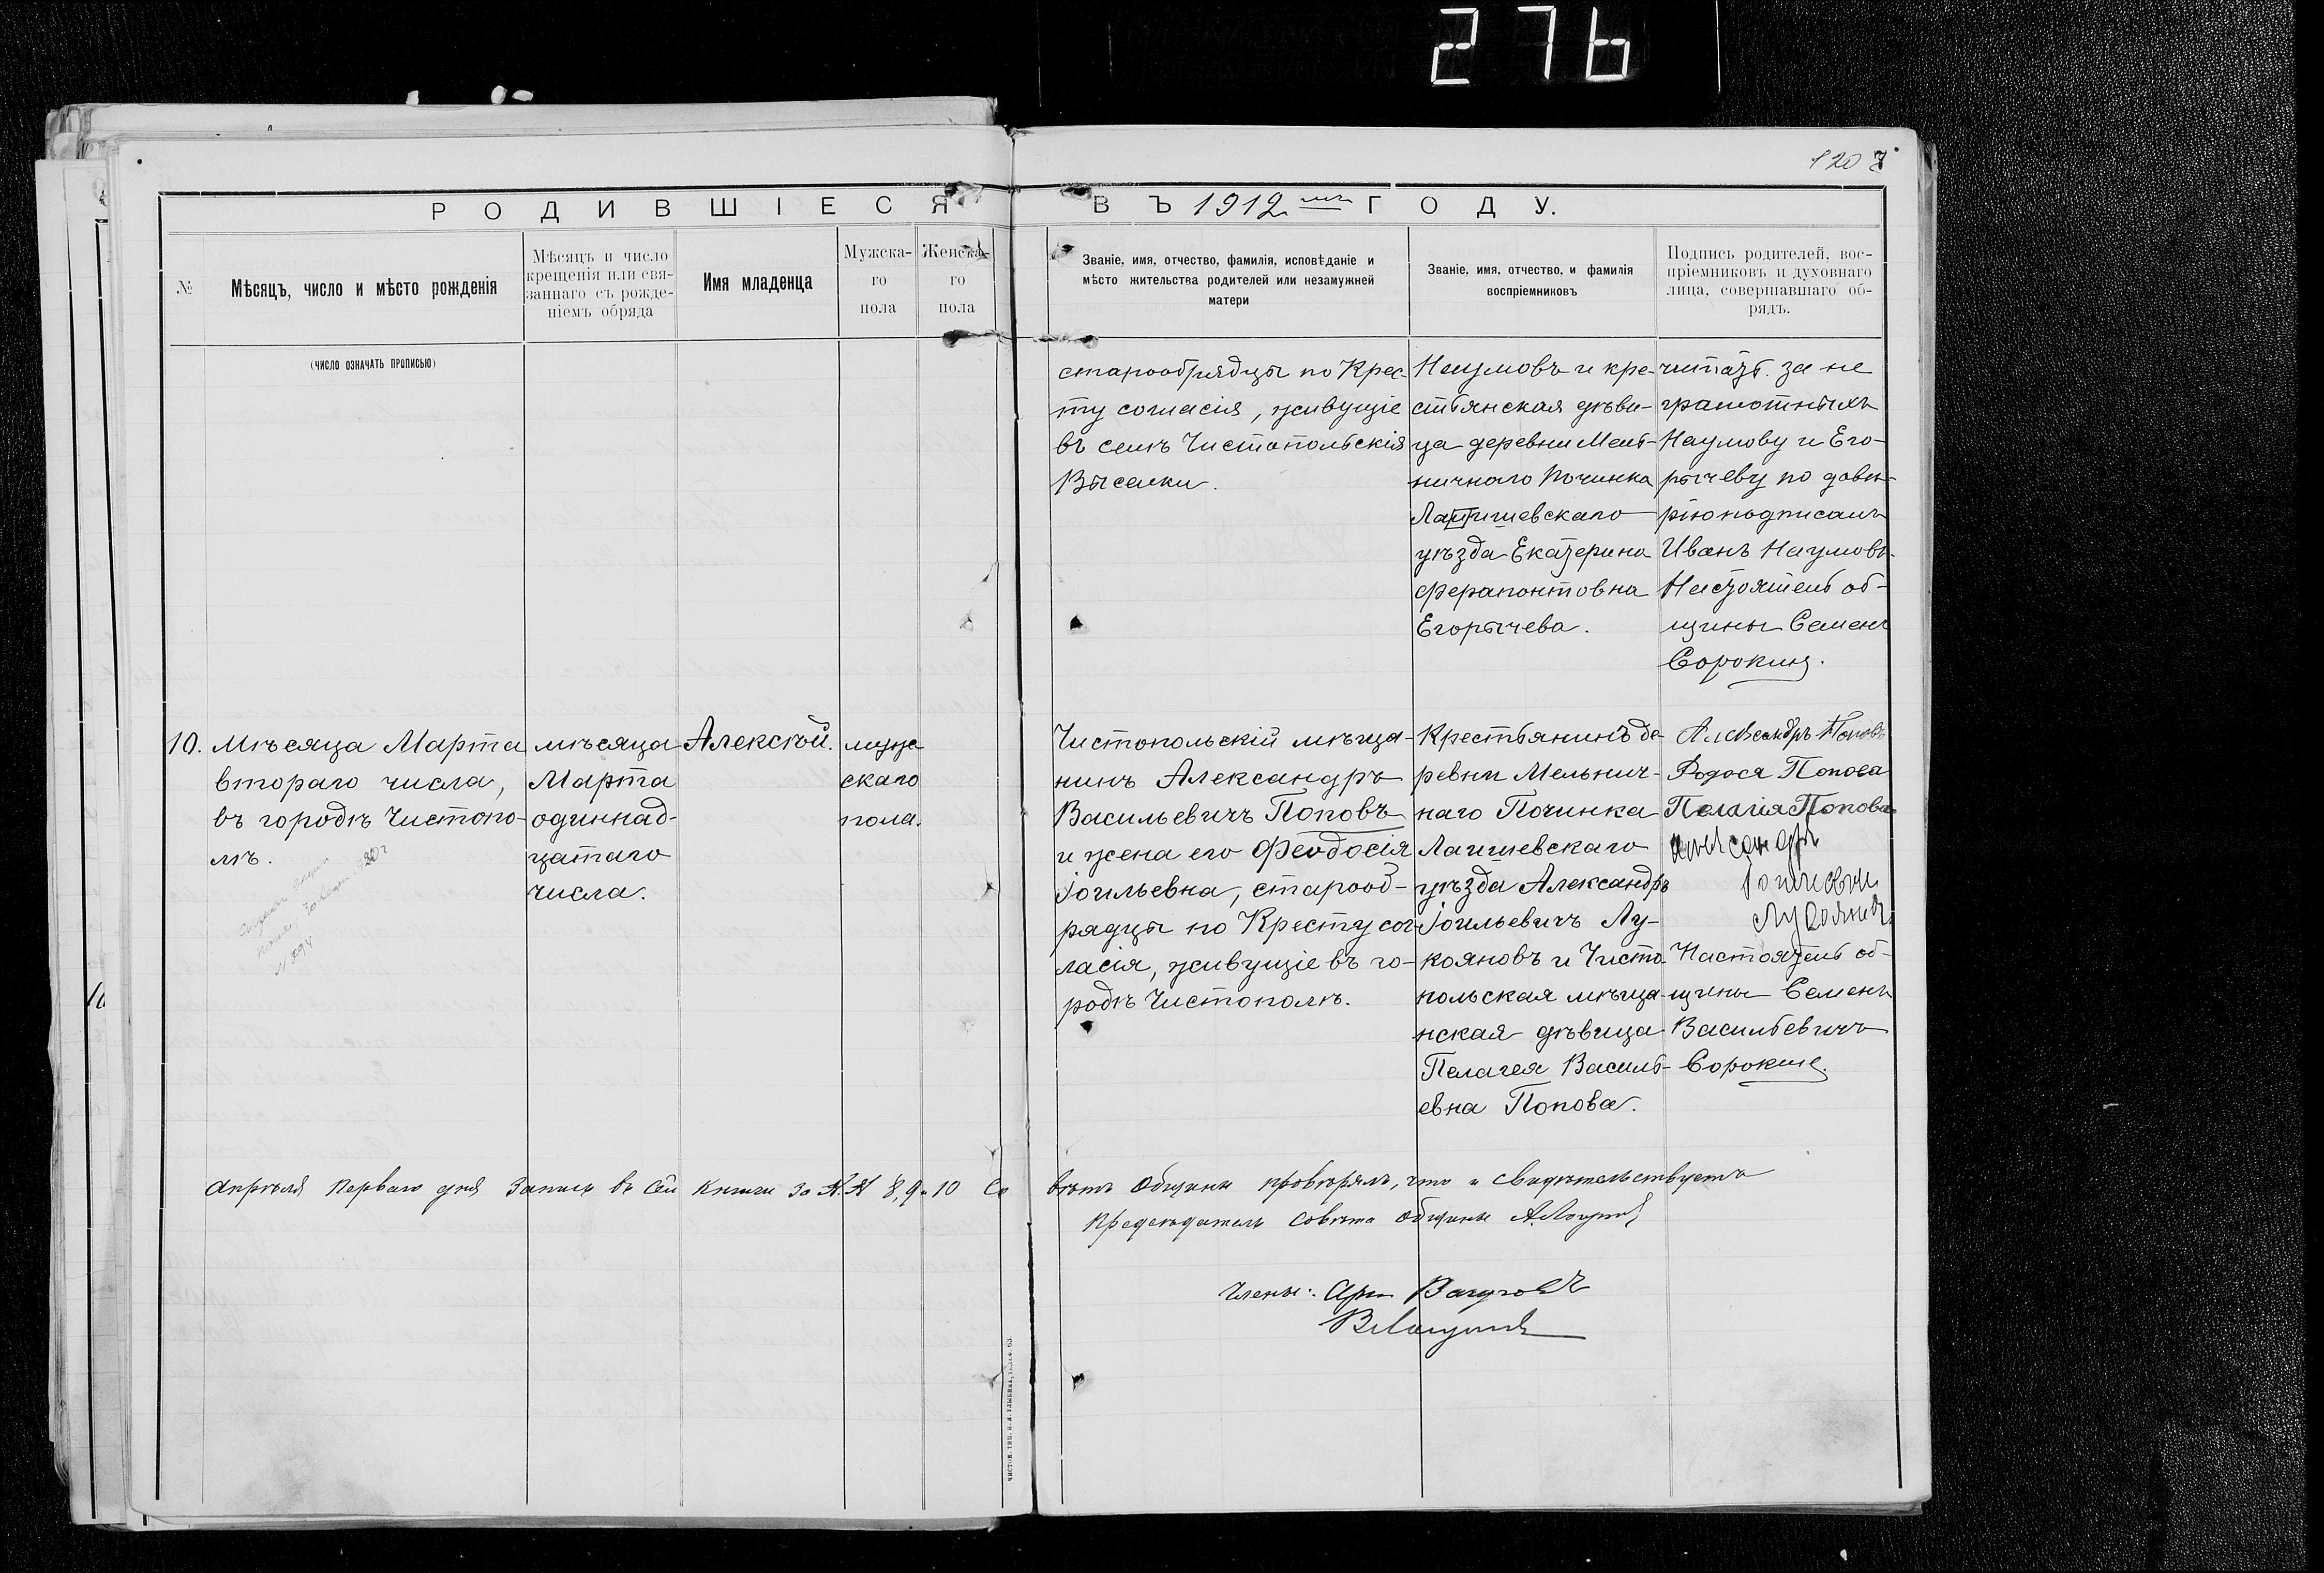 276
120 7
РОДИВШІЕСЯ ВЪ 1912 мъ ГОДУ.
№
Мѣсяцъ, число и мѣсто рожденія
Мѣсяцъ и число
крещенія или свя-
заннаго съ рожде-
ніемъ обряда
Имя младенца
Мужска-
го
пола
Женска-
го
пола
Званіе, имя, отчество, фамилія, исповѣданіе и
мѣсто жительства родителей или незамужней
матери
Званіе, имя, отчество, и фамилія
воспріемниковъ
Подпись родителей, вос-
пріемниковъ и духовнаго
лица, совершавшаго об-
рядъ.
(ЧИСЛО ОЗНАЧАТЬ ПРОПИСЬЮ)
старообрядцы по Крес-
ту согласія, живущіе
въ селѣ Чистопольскія
Выселки.
Наумовъ и кре-
стьянская дѣви-
ца деревни Мель-
ничнаго Починка
Лаишевскаго
уѣзда Екатерина
Ферапонтовна
Егорычева.
за не
грамотныхъ
Наумову и Его-
рычеву по довѣ-
рію подписалъ
Иванъ Наумовъ.
Настоятель об-
щины Семенъ
Сорокинъ.
10.
Мѣсяца Марта
втораго числа,
въ городѣ Чистопо-
лѣ.
мѣсяца
Марта
одиннад-
цатаго
числа.
Алексѣй.
муже-
скаго
пола.
Чистопольскій мѣща-
нинъ Александръ
Васильевичъ Поповъ
и жена его Феодосія
Іоильевна, старооб-
рядцы по Кресту сог-
ласія, живущіе въ го-
родѣ Чистополѣ.
Крестьянинъ де-
ревни Мельнич-
наго Починка
Лаишевскаго
уѣзда Александръ
Іоильевичъ Лу-
кояновъ и Чисто-
польская мѣща-
нская дѣвица
Пелагея Василь-
евна Попова.
Александръ Поповъ
Федося Попова
Пелагія Попова
Настоятель об-
щины Семенъ
Васильевичъ
Сорокинъ.
Апрѣля перваго дня запись въ сей книги за №№ 8, 9 и 10 Со
вѣтъ Общины провѣрялъ, что и свидѣтельствуетъ
Предсѣдатель Совѣта общины
Члены: